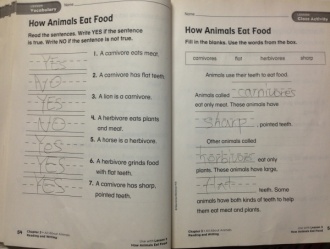 Vocabulary
Name
How Animals Eat Food
Read the sentences. Write YES if the sentence
is true. Write NO if the sentence is not true.
YES 1. A carnivore eats meat.
NO 2. A carnivore has flat teeth.
YES 3. A lion is a carnivore.
NO 4. A herbivore eats plants
and meat.
YES 5. A horse is a herbivore.
YES 6. A herbivore grinds food
with flat teeth.
YES 7. A carnivore has sharp,
pointed teeth.
Reading and Writing
How Animals Eat Food
Name
Cloze Activity
How Animals Eat Food
Fill in the blanks. Use the words from the box.
carnivores flat herbivores sharp
Animals use their teeth to eat food.
Animals called carnivores
eat only meat. These animals have
sharp, pointed teeth.
Other animals called
herbivores eat only
plants. These animals have large,
flat teeth. Some
animals have both kinds of teeth to help
them eat meat and plants.
Reading and Writing
How Animals Eat Food